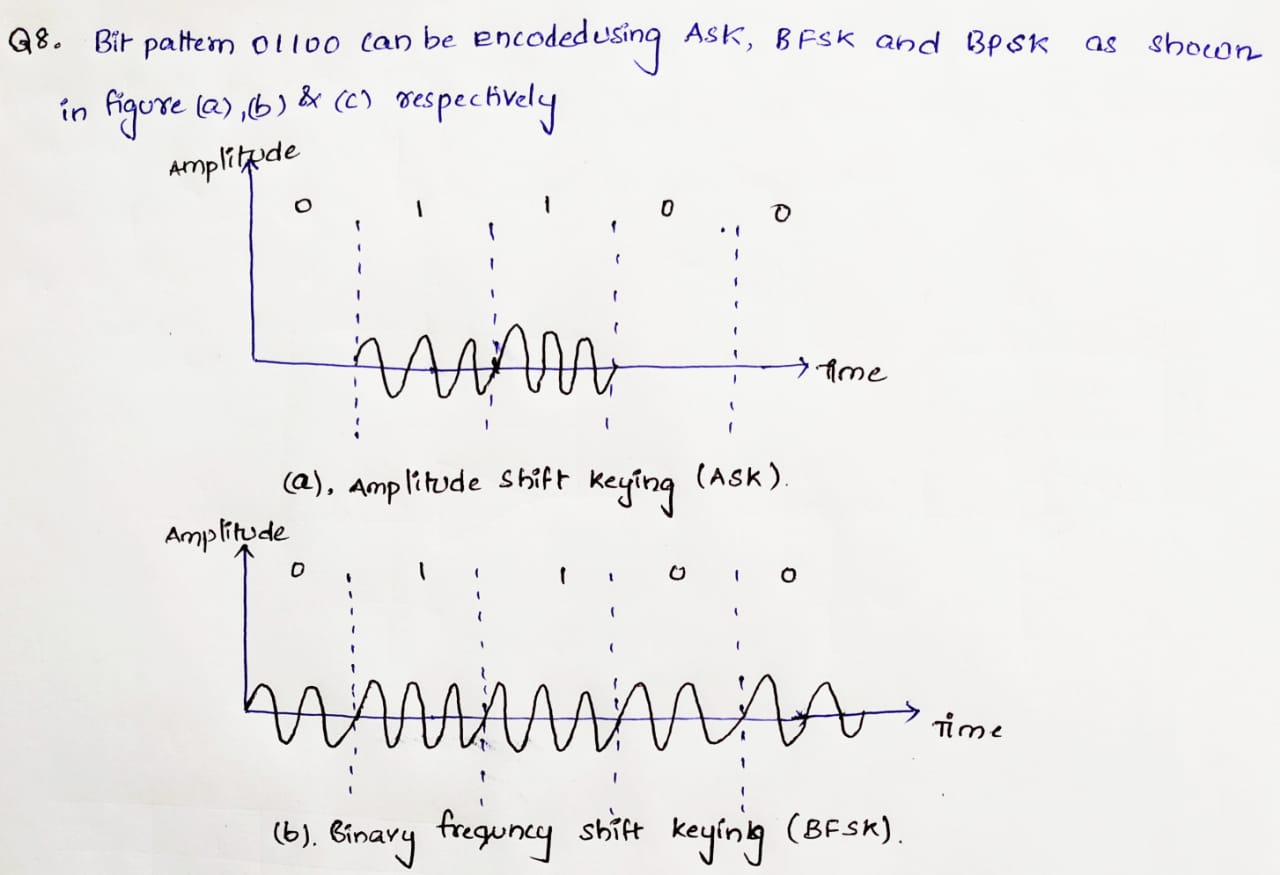 Q8. Bit pattern 01100 can be encoded using ASK, BFSK and BPSK as shown
in figure (a), (b) & (c) respectively
Amplitude
0 1 1 0 0
Time
(a), Amplitude Shift Keying (ASK).
Amplitude
0 1 1 0 0
Time
(b). Binary frequncy shift keying (BFSK).